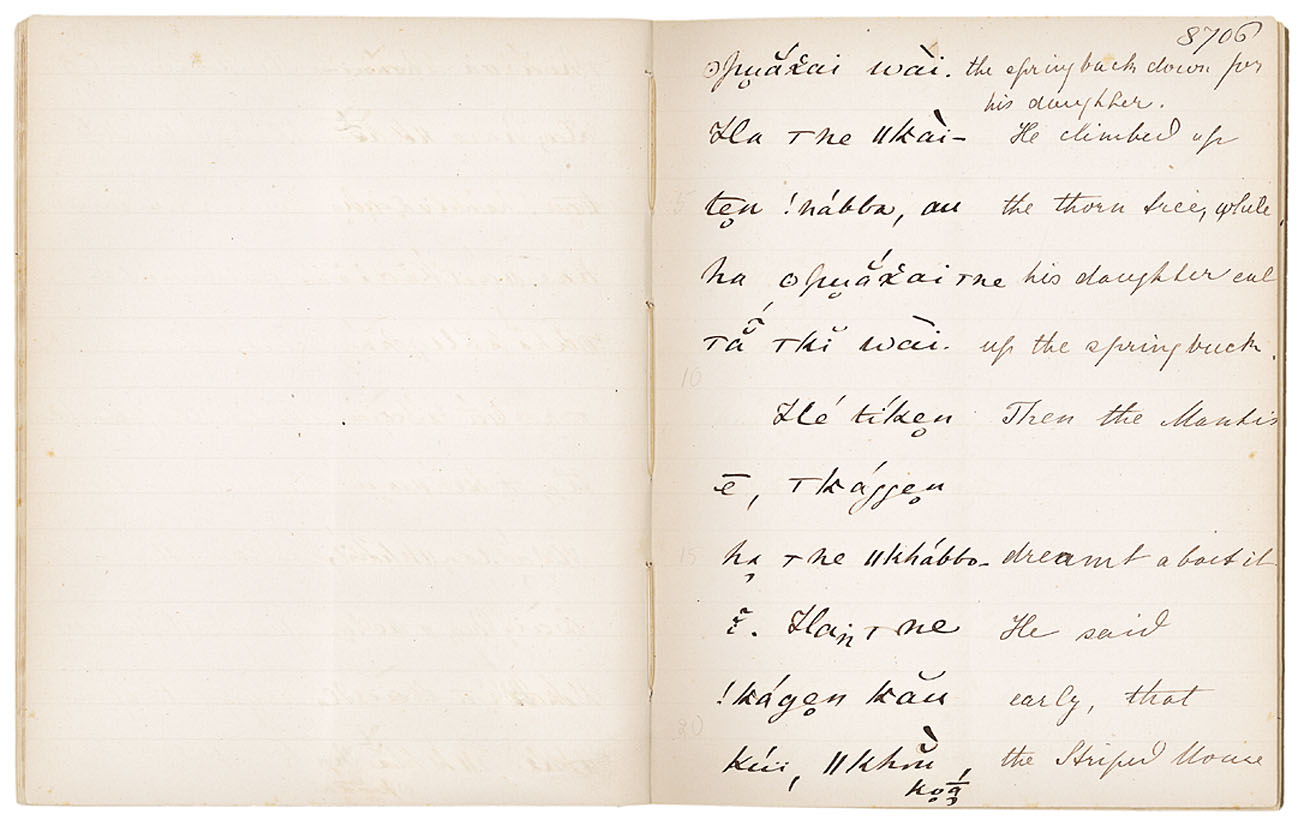 8706
ʘpuắx̆ai wài. the springbuck down for
his daughter.
Ha ꞇne ǁkài- He climbed up
5
ten̥ !nábba, au the thorn tree, while
ha ʘpuắx̆ai ꞇne his daughter cut
ꞇā̆ ꞇkĭ wài. up the springbuck.
10
Hé tíken̥ Then the Mantis
ē, ꞇkággen̥
15
ha̦ ꞇne ǁkhábbo- dreamt about it
ĩ. Haṅ ꞇne He said
!kágen̥ kău early, that
20
kúï, ǁkhȑŭ, the Striped Mouse
ko̥ḁ́